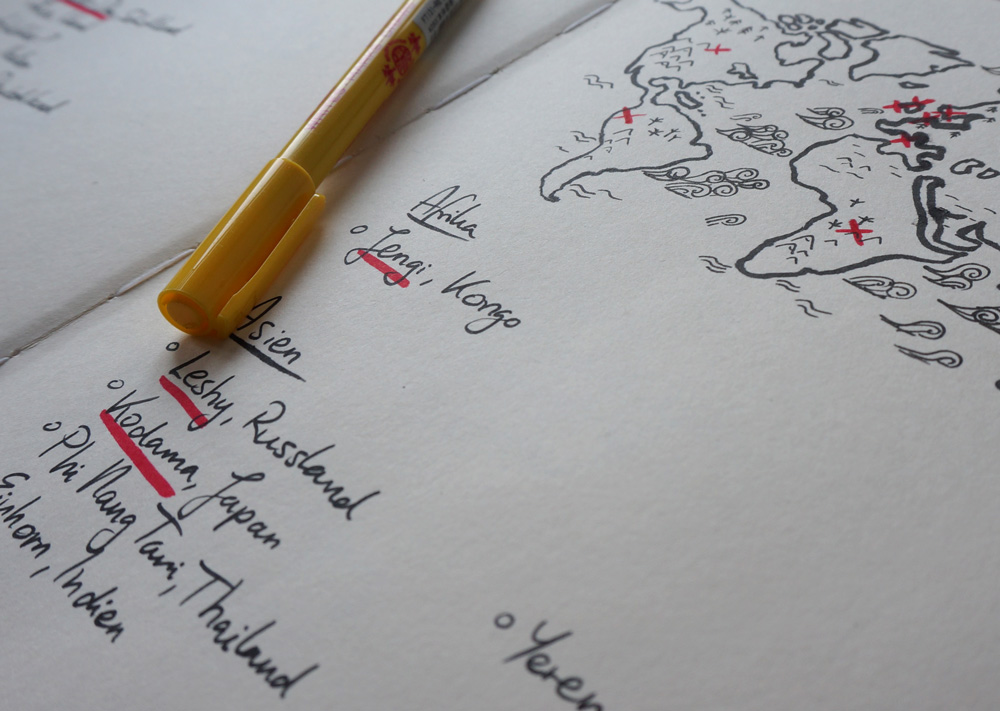 Afrika
Jengi, Kongo
Asien
Leshy, Russland
Kodama, Japan
Phi Nang Tani, Thailand
Einhorn, Indien